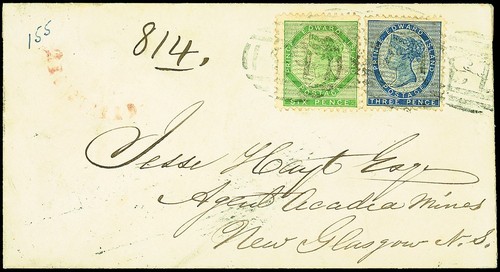 155
814.
PRINCE EDWARD
POSTAGE
SIX PENCE
PRINCE EDWARD ISLAND
POSTAGE
THREE PENCE
Jesse Hoyt Esqr
Agent Acadia Mines
New Glasgow N.S.